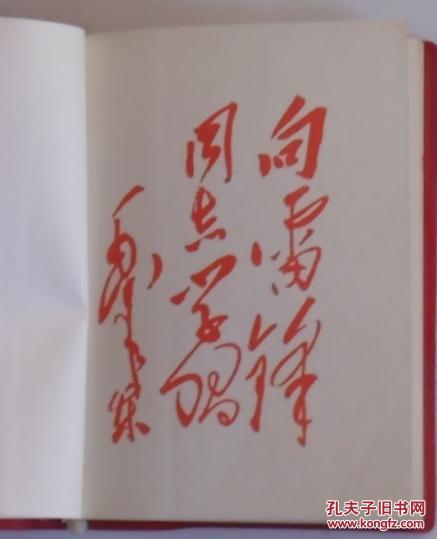 向雷锋
同志学习
毛泽东
孔夫子旧书网
KFZ.CN